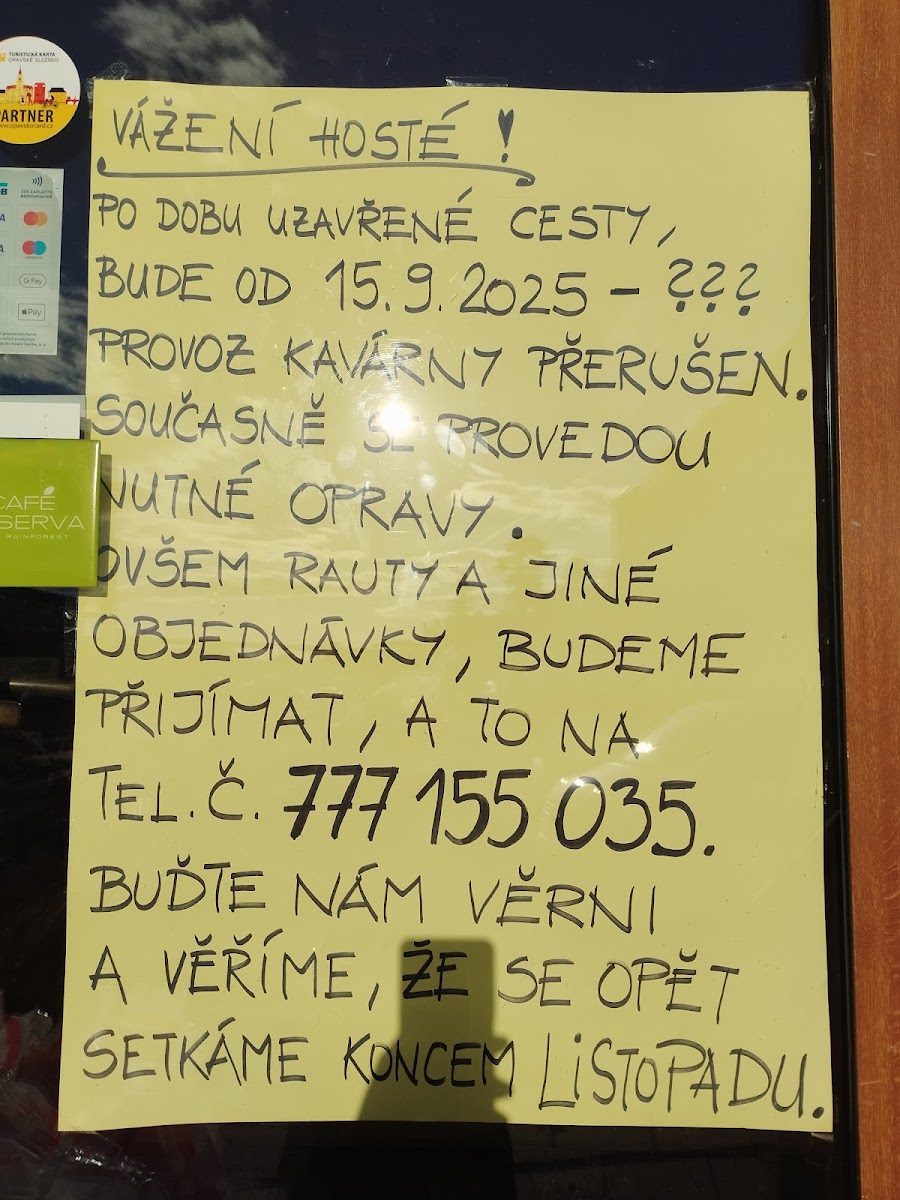 TURISTICKÁ KARTA
OPAVSKÉ SLEZSKO
PARTNER
www.opavskocard.cz
ZDE ZAPLATÍTE
BEZKONTAKTNĚ
G Pay
Pay
CAFÉ
RAINFOREST
VÁŽENÍ HOSTÉ !
PO DOBU UZAVŘENÉ CESTY,
BUDE OD 15.9.2025 – ???
PROVOZ KAVÁRNY PŘERUŠEN.
SOUČASNĚ SE PROVEDOU
NUTNÉ OPRAVY.
OVŠEM RAUTY A JINÉ
OBJEDNÁVKY, BUDEME
PŘIJÍMAT, A TO NA
TEL.Č. 777 155 035.
BUĎTE NÁM VĚRNI
A VĚŘÍME, ŽE SE OPĚT
SETKÁME KONCEM LiSTOPADU.